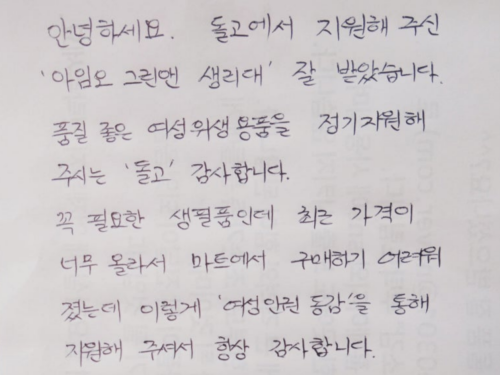 안녕하세요. 돌고에서 지원해 주신
'아임오 그린앤 생리대' 잘 받았습니다.
품질 좋은 여성위생용품을 정기지원해
주시는 '돌고' 감사합니다.
꼭 필요한 생필품인데 최근 가격이
너무 올라서 마트에서 구매하기 어려워
졌는데 이렇게 '여성인권 동감'을 통해
지원해 주셔서 항상 감사합니다.